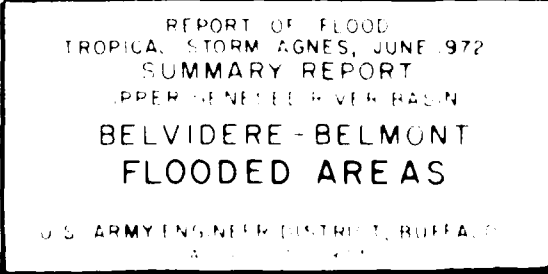 REPORT OF FLOOD
TROPICAL STORM AGNES, JUNE 1972
SUMMARY REPORT
UPPER GENESEE RIVER BASIN
BELVIDERE - BELMONT
FLOODED AREAS
U.S. ARMY ENGINEER DISTRICT, BUFFALO